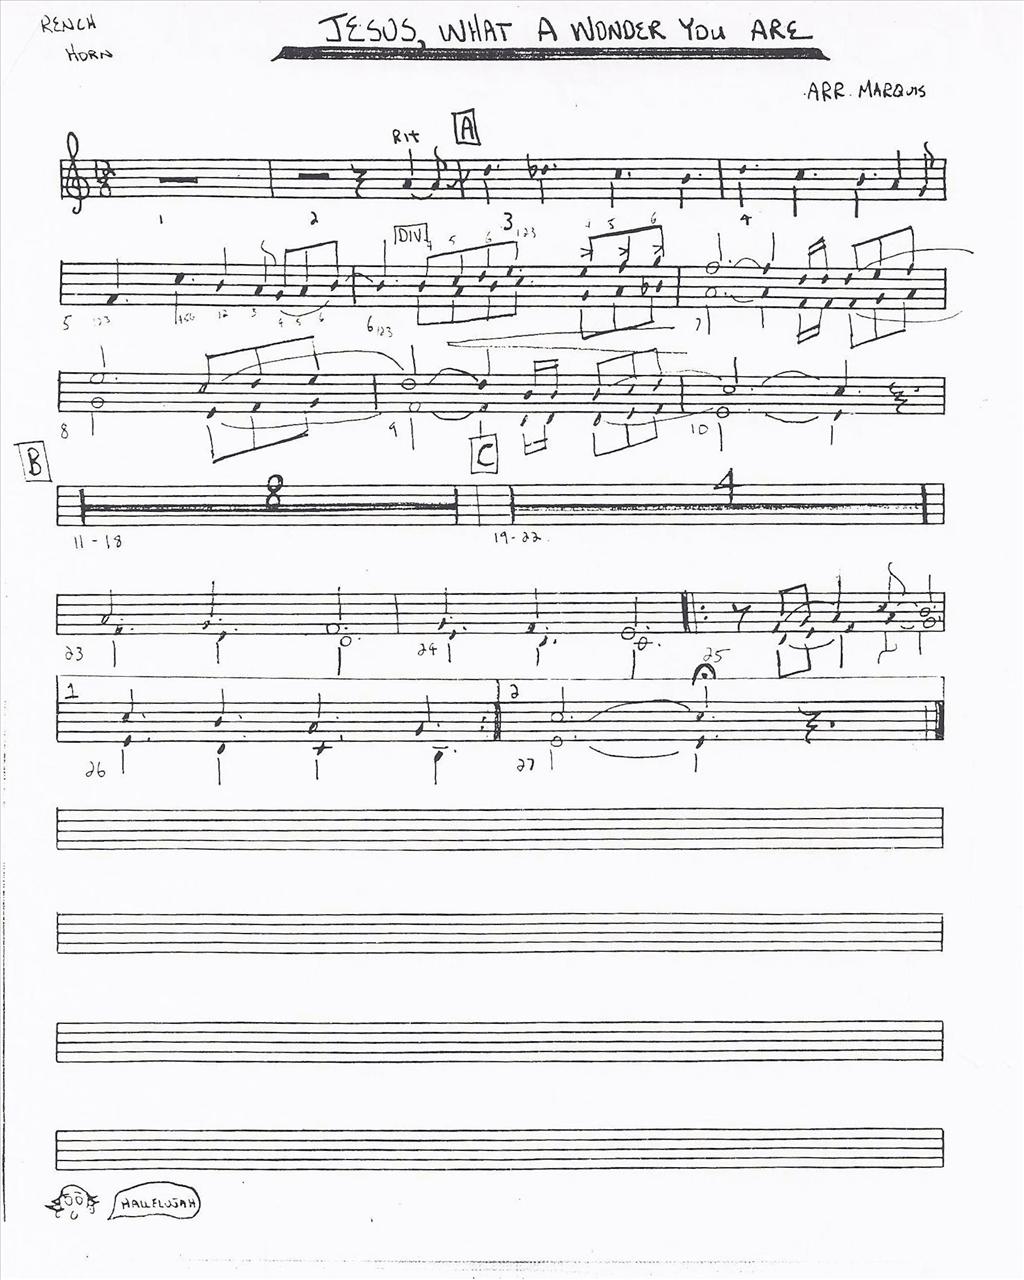 RENCH
HORN
JESUS, WHAT A WONDER YOU ARE
ARR. MARQUIS
Rit
A
1 2 3 4
DIV.
4 5 6 123 4 5 6
5 123 456 12 3 4 5 6 6 123 7
8 9 10
B
C
8 4
11-18 19-22.
23 24 25
1 2
26 27
HALLELUJAH